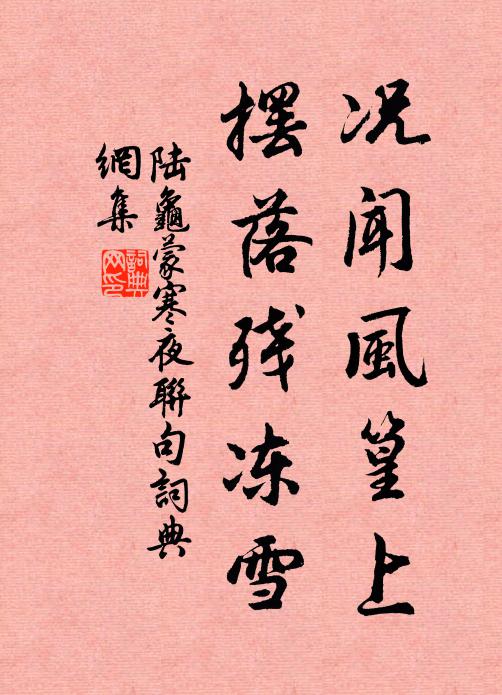 况闻風篁上
摆落残冻雪
陆龜蒙寒夜聯句詞典
網集
詞典
网印